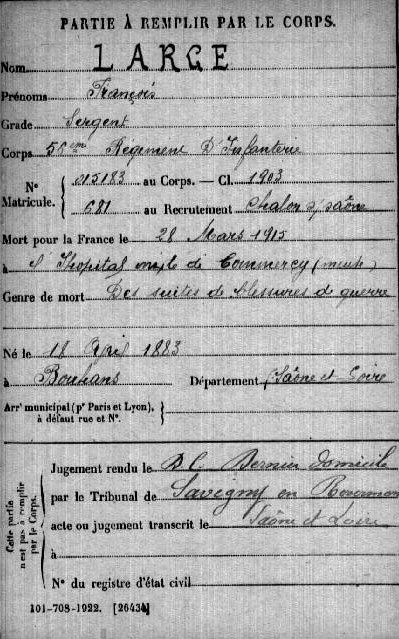 PARTIE À REMPLIR PAR LE CORPS.
Nom LARGE
Prénoms François
Grade Sergent
Corps 56em Régiment D'Infanterie
N° Matricule. { 015183 au Corps. — Cl. 1903
681 au Recrutement Chalon s/saône
Mort pour la France le 28 Mars 1915
à l'Hopital de Commercy (meuse)
Genre de mort Des suites de blessures de guerre
Né le 18 Avril 1883
à Bouhans Département Saône et Loire
Arr' municipal (p' Paris et Lyon),
à défaut rue et N°.
Cette partie n'est pas à remplir par le Corps.
Jugement rendu le D.C. Dernier domicile
par le Tribunal de Savigny en Revermont
acte ou jugement transcrit le Saône et Loire
à
N° du registre d'état civil
101-708-1922. [26434]